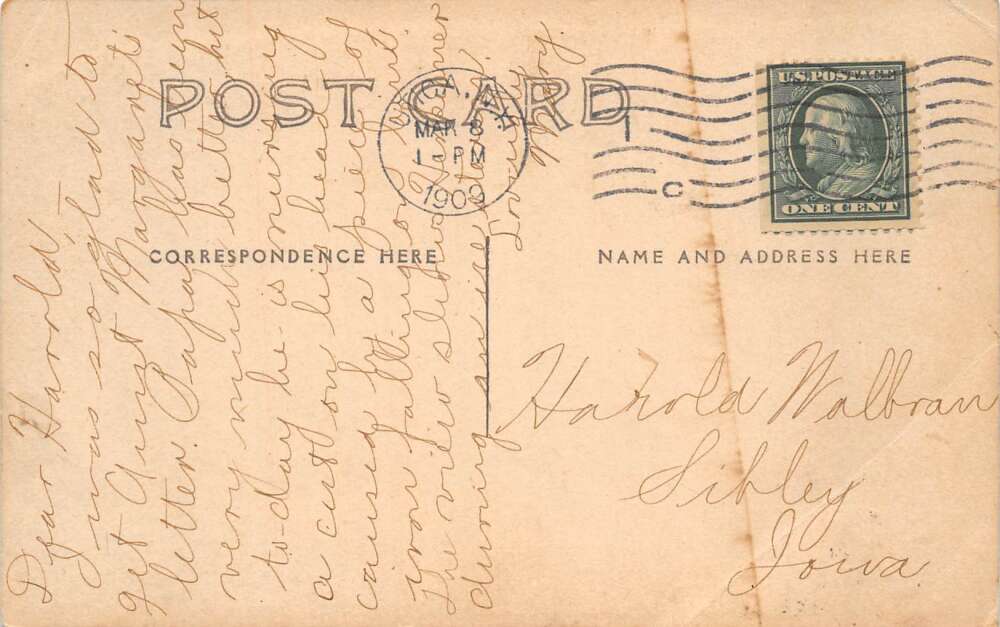 POST CARD
MAR 8
1 - PM
1909
C
U.S. POSTAGE
ONE CENT
CORRESPONDENCE HERE
NAME AND ADDRESS HERE
Dear Harold,
I was so glad to
get Aunt Margaret's
letter. Papa has been
very much better but
to-day he is nursing
a cut on his head
caused by a piece of
iron falling on
The view shows
during an ice
Lovingly
Mary.
Harold Walbran
Sibley
Iowa.